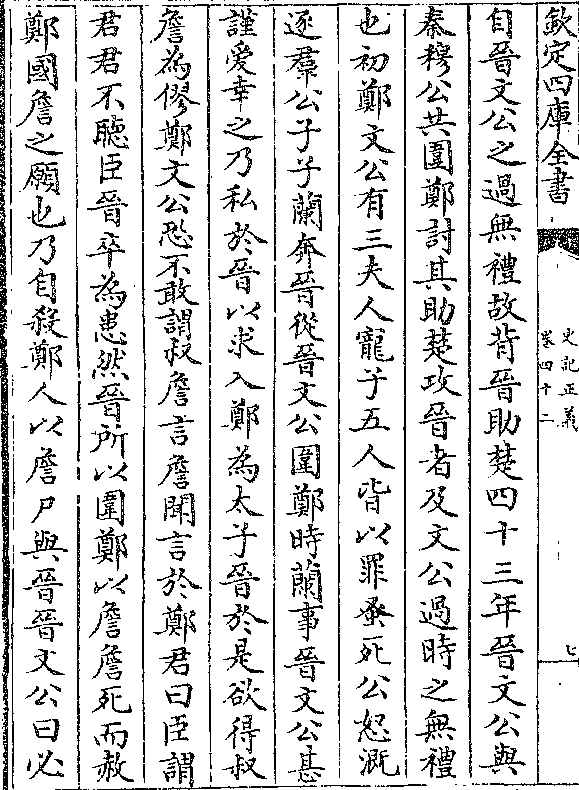 欽定四庫全書
史記正義
卷四十二
七
自晉文公之過無禮故背晉助楚四十三年晉文公與
秦穆公共圍鄭討其助楚攻晉者及文公過時之無禮
也初鄭文公有三夫人寵子五人皆以罪蚤死公怒溉
逐羣公子子蘭奔晉從晉文公圍鄭時蘭事晉文公甚
謹愛幸之乃私於晉以求入鄭為太子晉於是欲得叔
詹為僇鄭文公恐不敢謂叔詹言詹聞言於鄭君曰臣謂
君君不聽臣晉卒為患然晉所以圍鄭以詹詹死而赦
鄭國詹之願也乃自殺鄭人以詹尸與晉晉文公曰必